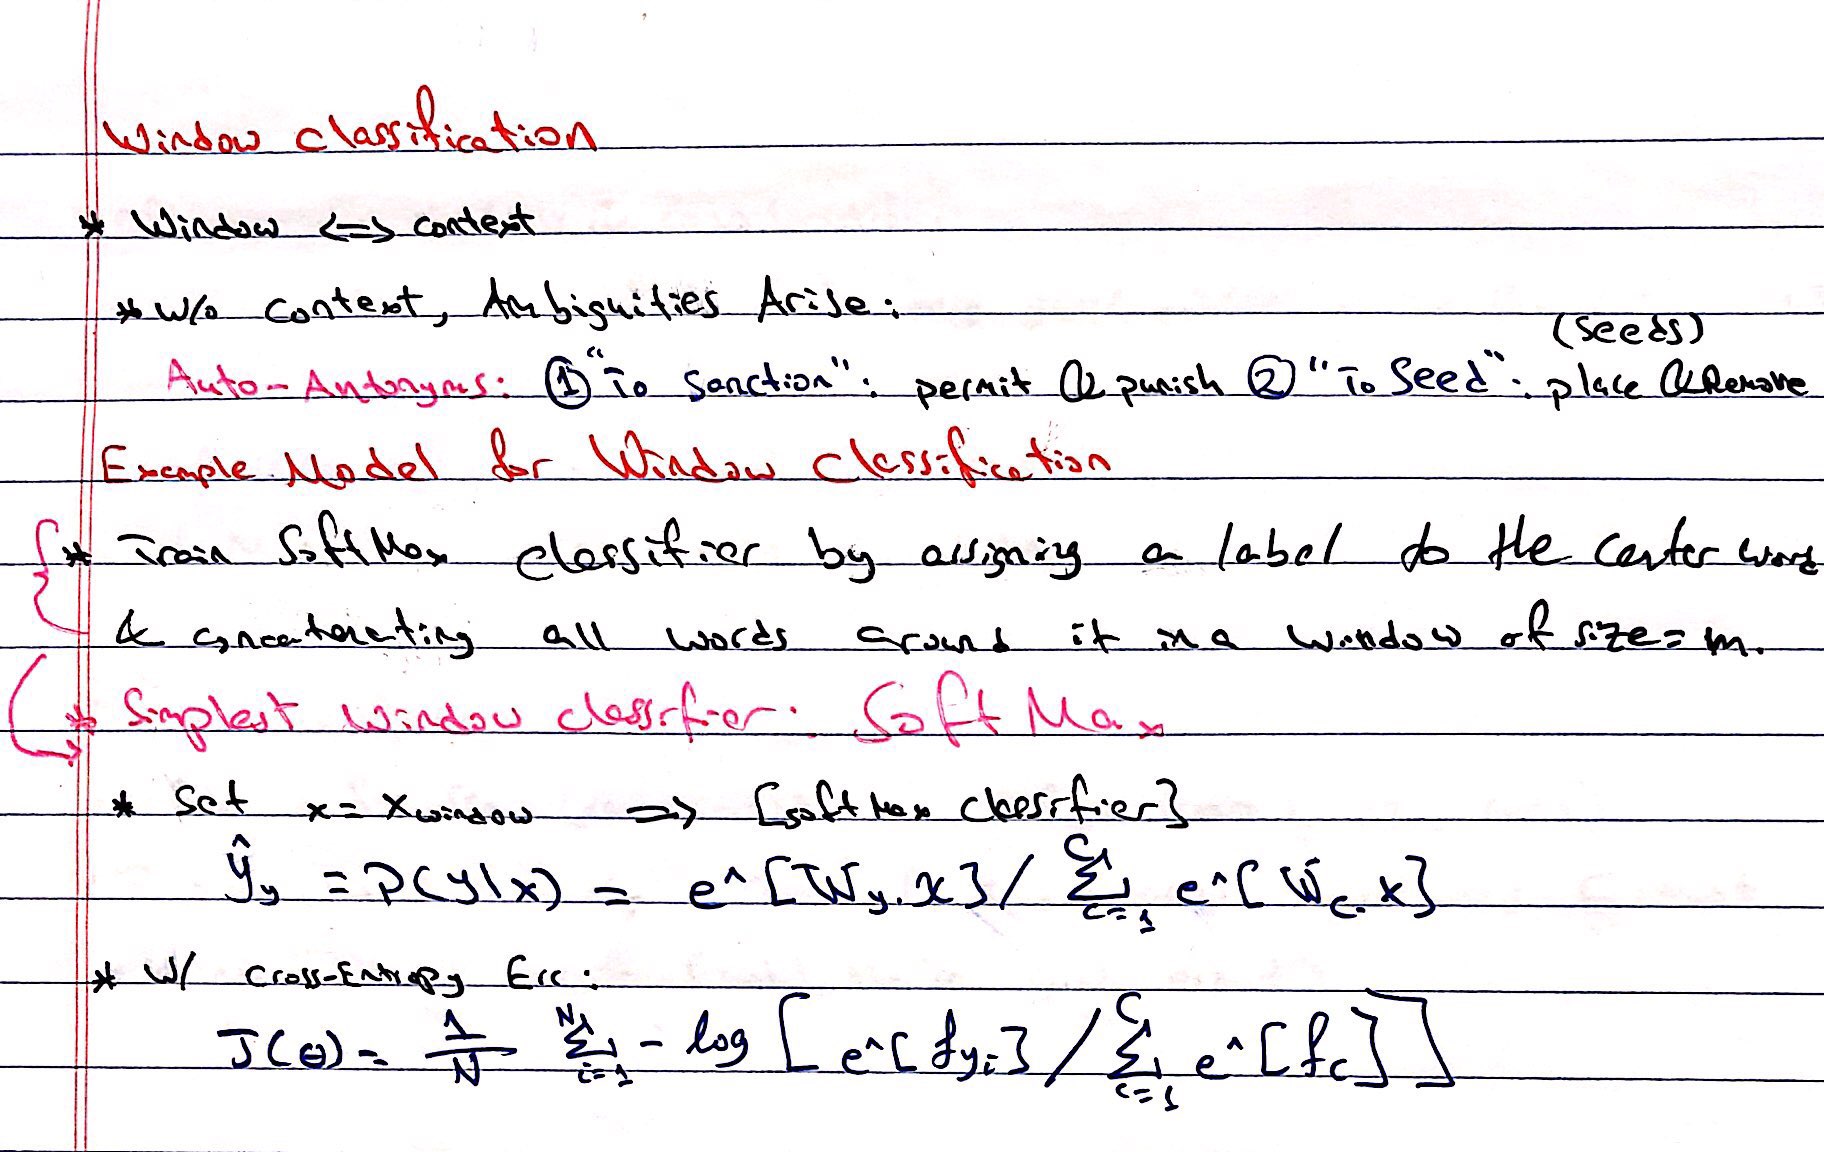 Window Classification
* Window <=> context
* w/o context, Ambiguities Arise:
(seeds)
Auto-Antonyms: ① "To Sanction": permit OR punish ② "To Seed": place OR Remove
Example Model for Window Classification
* Train SoftMax classifier by assigning a label to the center word
& concatenating all words around it in a window of size = m.
* Simplest window classifier: SoftMax
* Set x = x_window => [softMax classifier]
ŷ_y = P(y|x) = e^[W_y.x] / Σ_{c=1}^{C} e^[W_c.x]
* w/ Cross-Entropy Err:
J(θ) = 1/N Σ_{i=1}^{N} - log [ e^[f_{y_i}] / Σ_{c=1}^{C} e^[f_c] ]